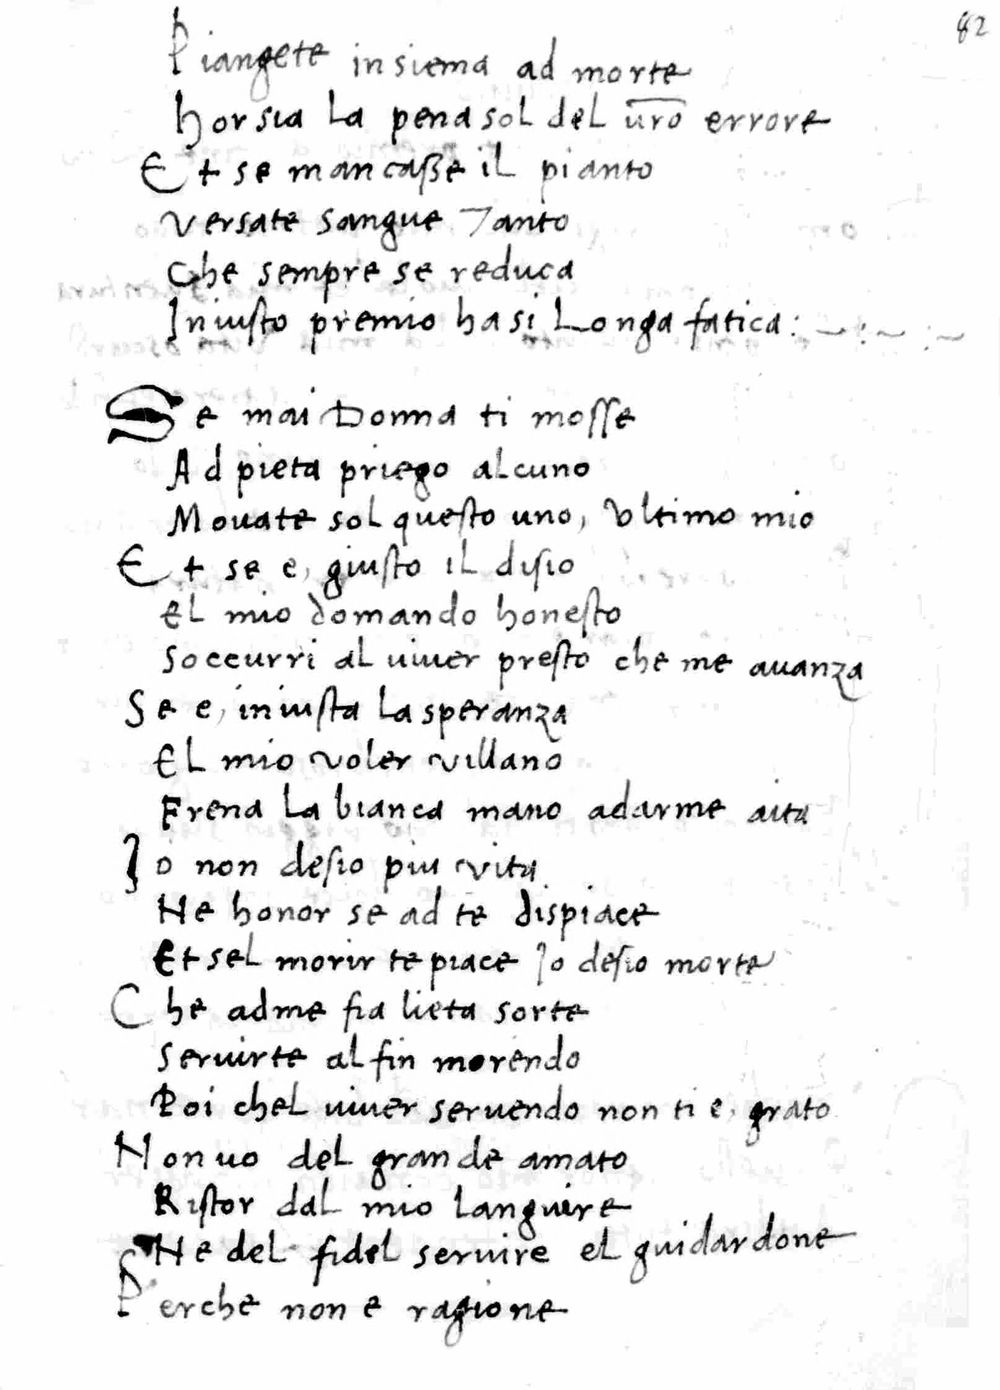 82
Piangete insiema ad morte
Hor sia la pena sol del uro errore
Et se mancasse il pianto
Versate sangue Tanto
Che sempre se reduca
Iniusto premio ha si Longa fatica:
Se mai Donna ti mosse
Ad pieta priego alcuno
Mouate sol questo uno, Vltimo mio
Et se e, giusto il disio
El mio domando honesto
Soccurri al uiuer presto che me auanza
Se e, iniusta La speranza
El mio voler villano
Frena La bianca mano adarme aita
Io non desio piu vita
Ne honor se ad te dispiace
Et sel morir te piace Io desio morte
Che adme fia lieta sorte
Seruirte al fin morendo
Poi chel uiuer seruendo non ti e, grato
Non uo del grande amato
Ristor dal mio Languire
Ne del fidel seruire el guidardone
Perche non e ragione